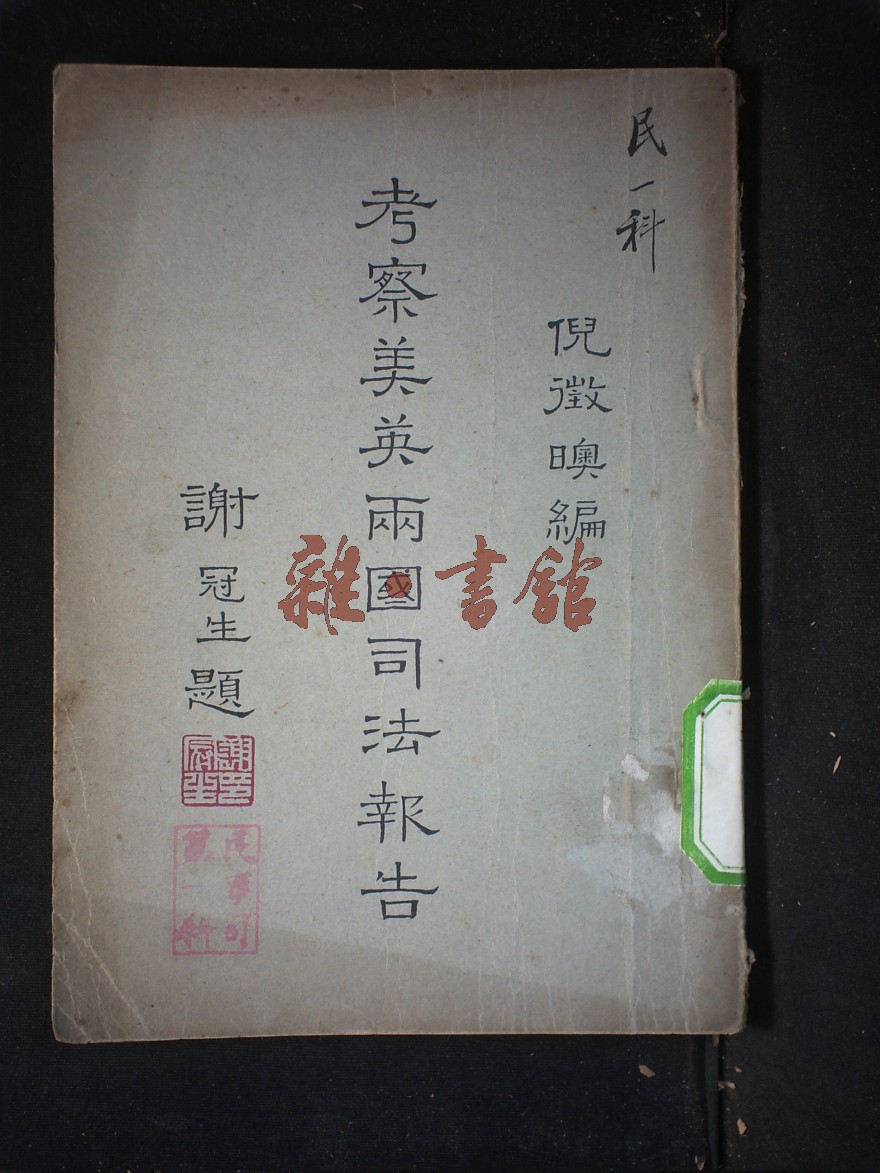 民一科
倪徵𣋉編
考察美英兩國司法報告
謝冠生題
謝冠生印
民事司
第一科
雜書館